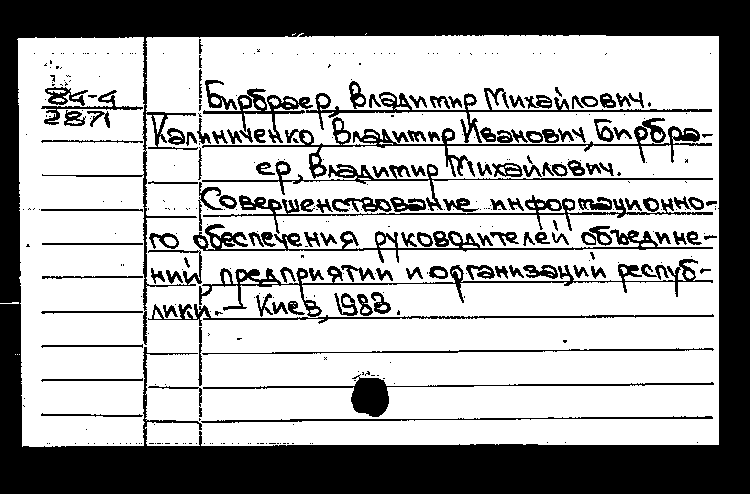 84-4 Бирбраер, Владимир Михайлович.
2871 Калиниченко, Владимир Иванович, Бирбра-
ер, Владимир Михайлович.
Совершенствование информационно-
го обеспечения руководителей объедине-
ний, предприятий и организаций респуб-
лики. — Киев, 1983.